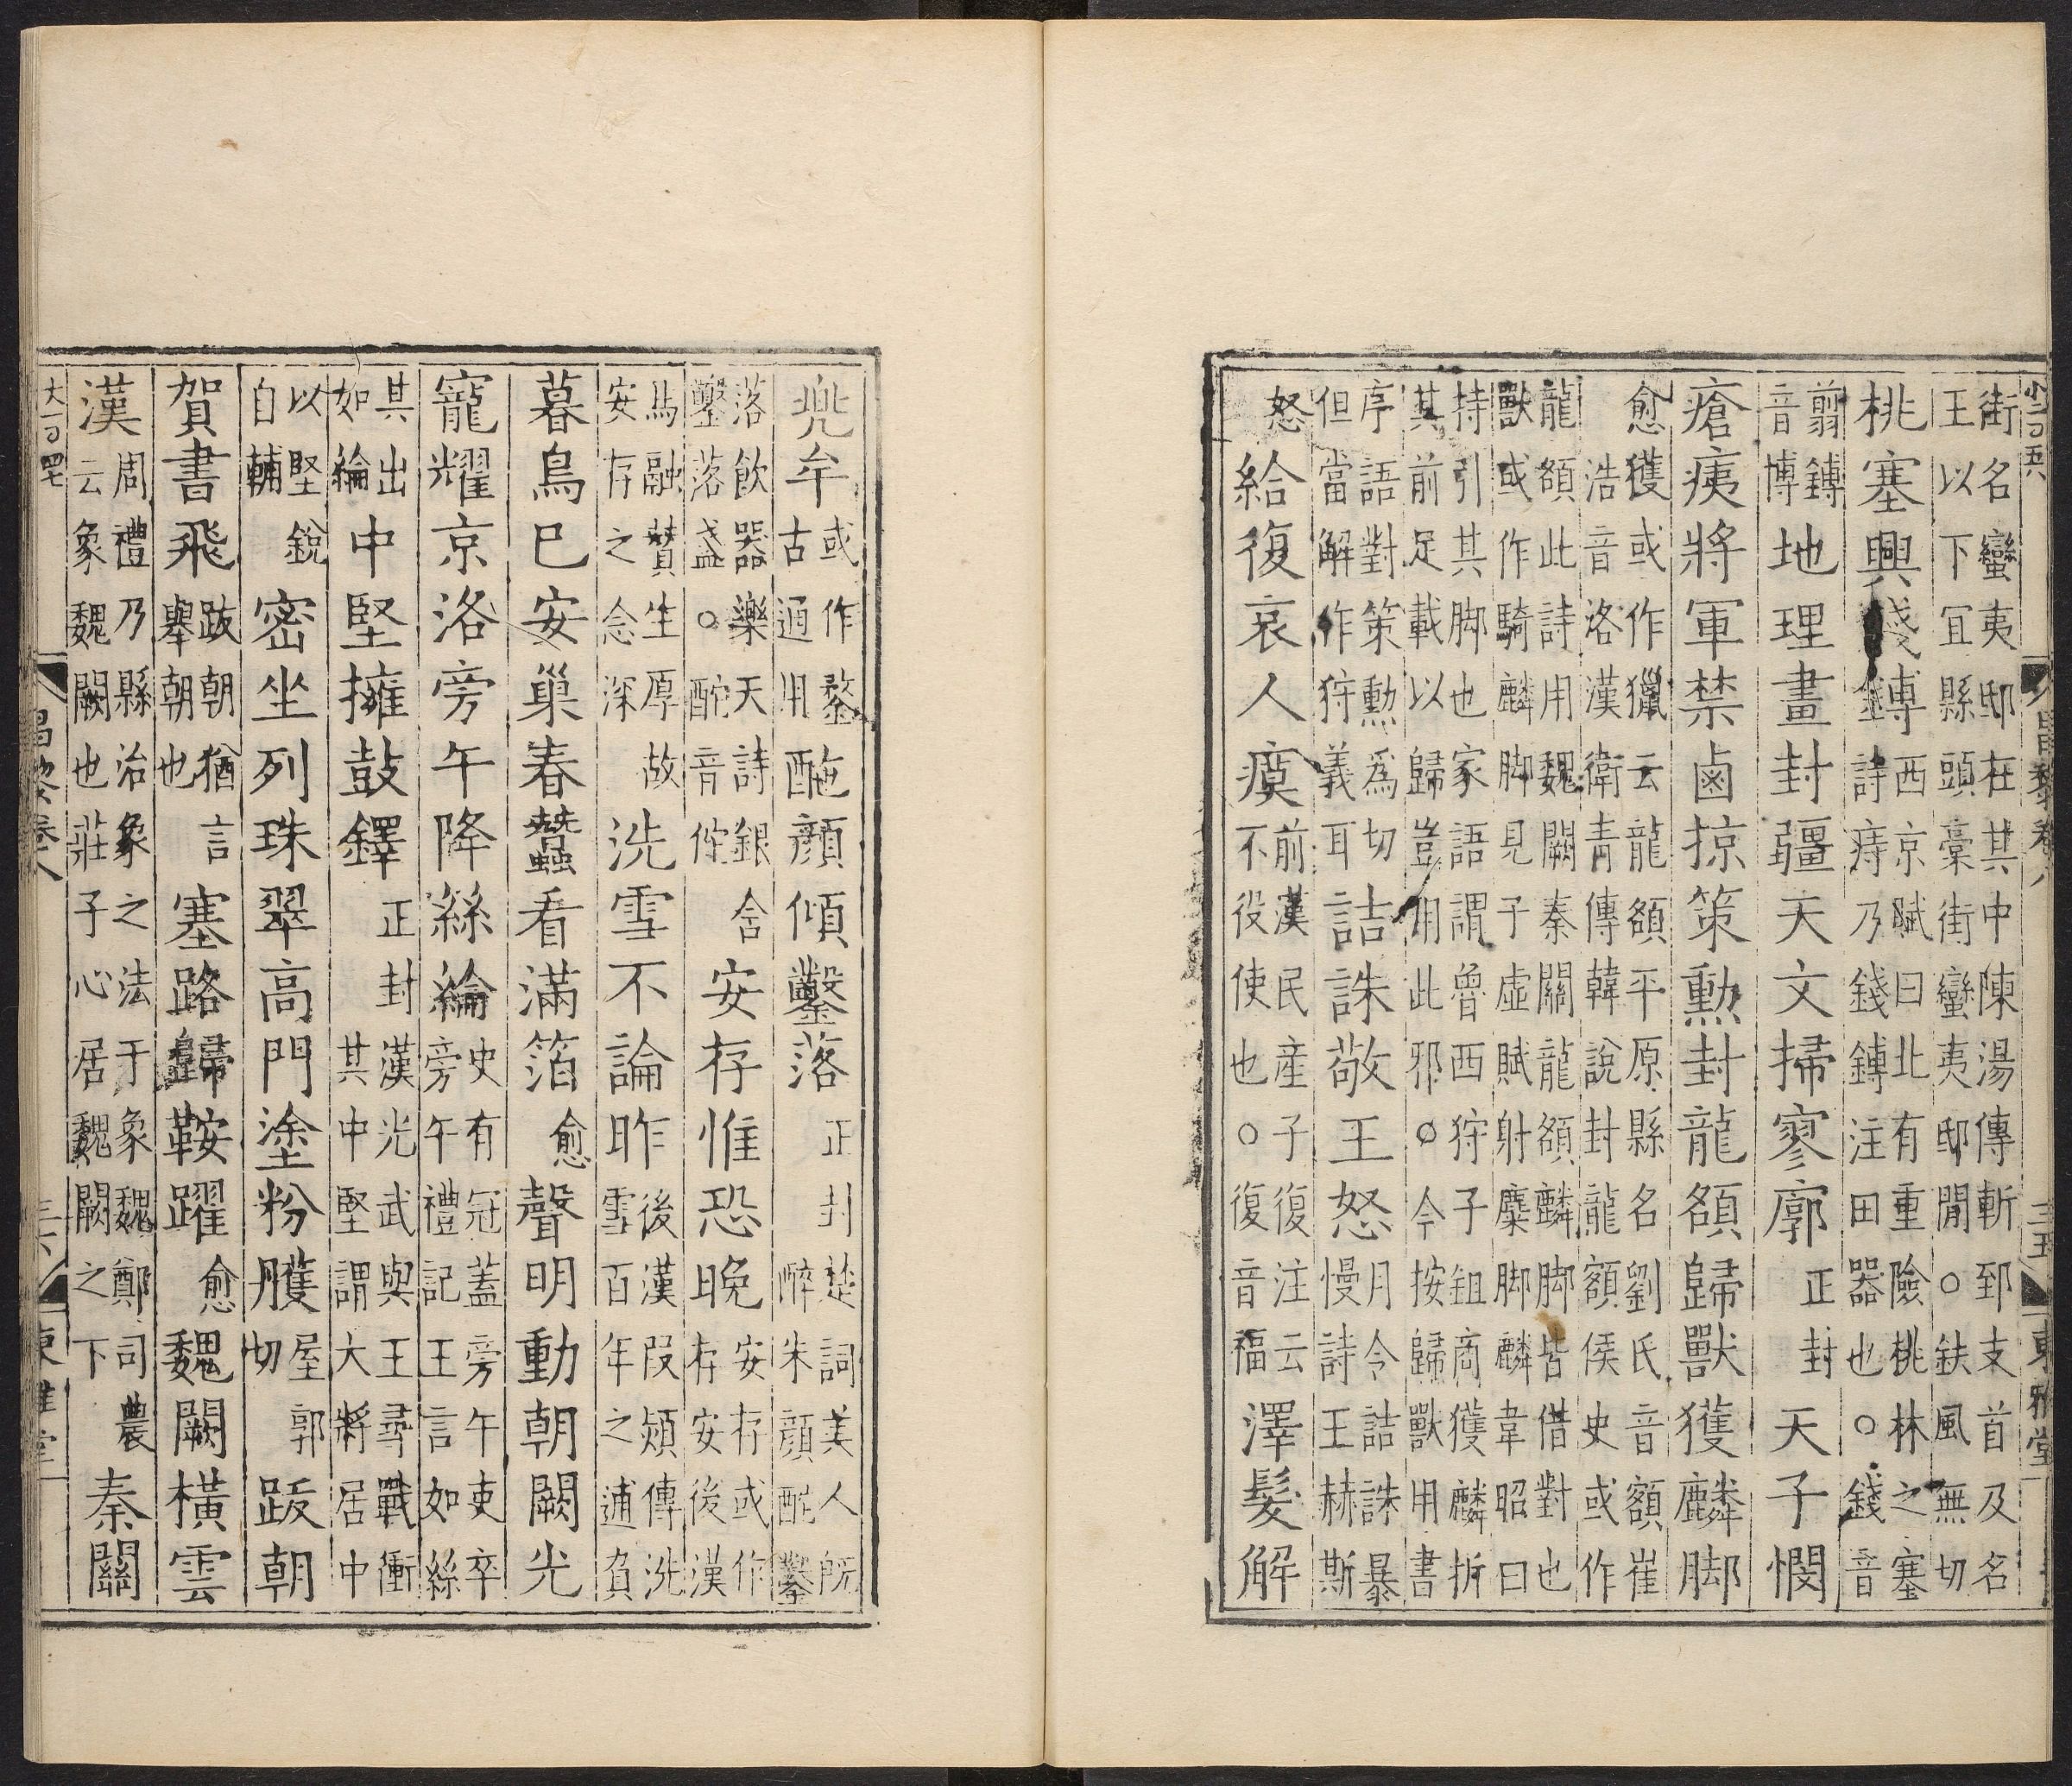 昌黎卷八 三五 東雅堂
街名蠻夷邸在其中陳湯傳斬郅支首及名
王以下宜縣頭槀街蠻夷邸間○鈇風無切
桃塞興錢鎛 西京賦曰北有重險桃林之塞 詩庤乃錢鎛注田器也○錢音
翦鎛 音博 地理畫封疆天文掃寥廓 正封 天子憫
瘡痍將軍禁鹵掠策勳封龍額歸獸獲麟脚
愈 獲或作獵云龍額平原縣名劉氏音額崔
浩音洛漢衛青傳韓說封龍額侯史或作
龍額此詩用魏闕秦關龍額麟脚皆借對也
獸或作騎麟脚見子虛賦射麋脚麟韋昭曰
持引其脚也家語謂魯西狩子鉏商獲麟折
其前足載以歸豈用此邪○今按歸獸用書
序語對策勳為切 但當解作狩義耳 詰誅敬王怒 月令詰誅暴 慢詩王赫斯
怒 給復哀人瘼 前漢民産子復注云 不役使也○復音福 澤髮解
兜牟 或作鍪 古通用 酡顏傾鑿落 正封 楚詞美人旣 醉朱顏酡鑿
落飲器樂天詩銀含 鑿落盞○酡音佗 安存惟恐晚 安存或作 存安後漢
馬融賛生厚故 安存之念深 洗雪不論昨 後漢段熲傳洗 雪百年之逋負
暮鳥巳安巢春蠶看滿箔 愈 聲明動朝闕光
寵耀京洛旁午降絲綸 史有冠蓋旁午吏卒 旁午禮記王言如絲
其出 如綸 中堅擁鼓鐸 正封 漢光武與王尋戰衝 其中堅謂大將居中
以堅銳 自輔 密坐列珠翠高門塗粉雘 屋郭 切 跋朝
賀書飛 跋朝猶言 舉朝也 塞路歸鞍躍 愈 魏闕橫雲
漢 周禮乃縣治象之法于象魏鄭司農 云象魏闕也莊子心居魏闕之下 秦關
昌黎卷八 三六 東雅堂